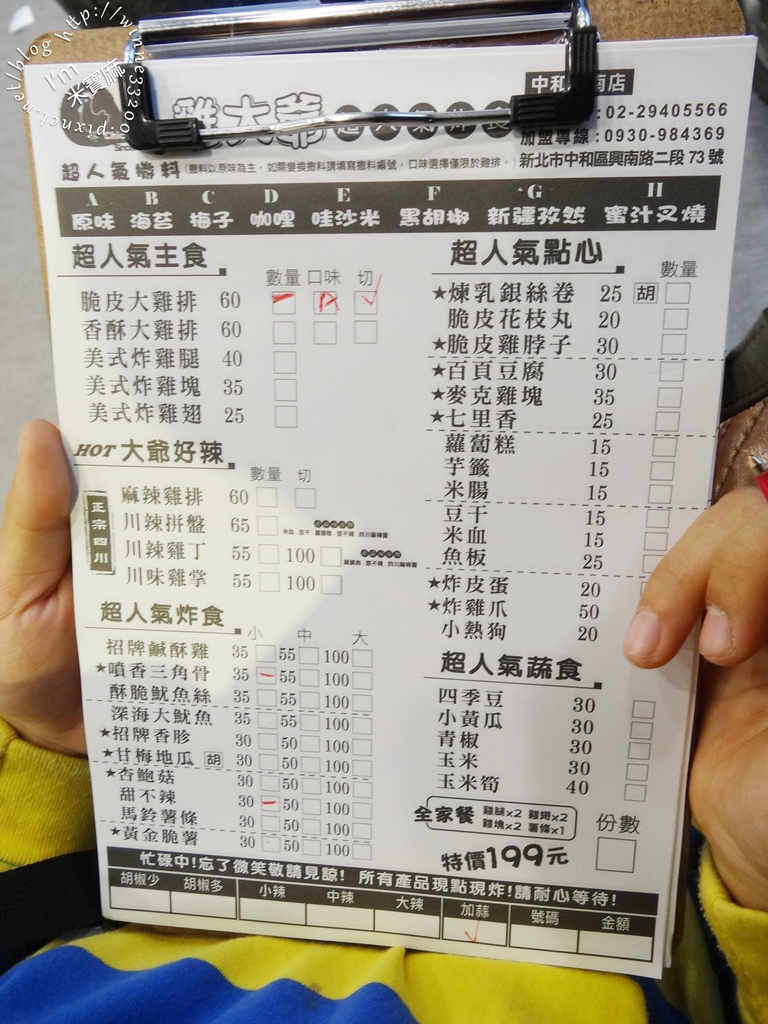 http://winne33200.pixnet.net/blog
I'm 米寶麻
雞大爺 超人氣炸
中和 南店
:02-29405566
加盟專線:0930-984369
新北市中和區興南路二段73號
超人氣撒料(撒料以原味為主,如需變換撒料請填寫撒料編號,口味選擇僅限於雞排。)
A B C D E F G H
原味 海苔 梅子 咖哩 哇沙米 黑胡椒 新疆孜然 蜜汁叉燒
超人氣主食
數量 口味 切
脆皮大雞排 60 A
香酥大雞排 60
美式炸雞腿 40
美式炸雞塊 35
美式炸雞翅 25
HOT 大爺好辣
數量 切
正宗四川
麻辣雞排 60
川辣拼盤 65
川辣雞丁 55 100
川味雞掌 55 100
超人氣炸食
小 中 大
招牌鹹酥雞 35 55 100
★噴香三角骨 35 55 100
酥脆魷魚絲 35 55 100
深海大魷魚 35 55 100
★招牌香胗 30 50 100
★甘梅地瓜 胡 30 50 100
★杏鮑菇 30 50 100
甜不辣 30 50 100
馬鈴薯條 30 50 100
★黃金脆薯 30 50 100
超人氣點心
數量
★煉乳銀絲卷 25 胡
脆皮花枝丸 20
★脆皮雞脖子 30
★百頁豆腐 30
★麥克雞塊 35
★七里香 25
蘿蔔糕 15
芋籤 15
米腸 15
豆干 15
米血 15
魚板 25
★炸皮蛋 20
★炸雞爪 50
小熱狗 20
超人氣蔬食
四季豆 30
小黃瓜 30
青椒 30
玉米 30
玉米筍 40
全家餐 雞腿x2 雞翅x2
雞塊x2 薯條x1
份數
特價199元
忙碌中!忘了微笑敬請見諒! 所有產品現點現炸!請耐心等待!
胡椒少 胡椒多 小辣 中辣 大辣 加蒜 號碼 金額